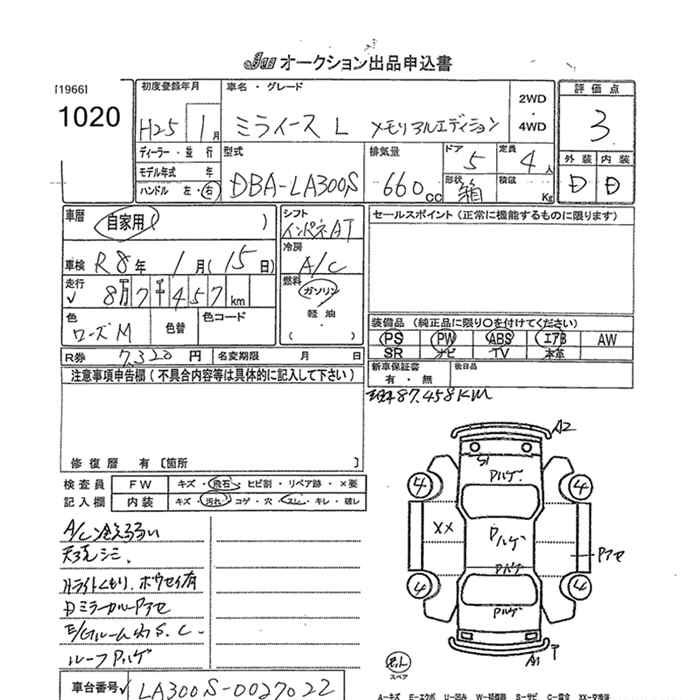 JU オークション出品申込書
[1966]
1020
初度登録年月
H25 1月
車名・グレード
ミライース L メモリアルエディション
2WD
4WD
評価点
3
外装 内装
D D
ディーラー・並行
モデル年式 年
ハンドル 左・右
型式
DBA-LA300S
排気量
660cc
ドア
5
定員
4人
形状
箱
積載
Kg
車歴
自家用( )
車検 R8年 1月(15日)
走行
8万7千457km
色
ローズM
色替
色コード
R券 7,320円
名変期限 月 日
シフト
インパネAT
冷房
A/C
燃料
ガソリン
軽油
( )
セールスポイント(正常に機能するものに限ります)
装備品(純正品に限り○を付けてください)
PS PW ABS エアB AW
SR ナビ TV 本革
新車保証書
有・無
後日品
87,458KM
注意事項申告欄(不具合内容等は具体的に記入して下さい)
修復歴 有 [箇所 ]
検査員
記入欄
FW キズ・飛石・ヒビ割・リペア跡・×要
内装 キズ・汚れ・コゲ・穴・スレ・キレ・破レ
A/C冷えるろい
天張シミ
Hライトくもり、ボウセイ有
Dミラーカバーアセ
E/Gルーム内S.C.
ルーフPハゲ
車台番号 LA300S-0027022
A2
S1
Pハゲ
4 4
XX
Pハゲ
Pアセ
Pハゲ
4 4
Pハゲ
A1 T
スペア
A-キズ E-エクボ U-凹み W-補修跡 S-サビ C-腐食 XX-交換済